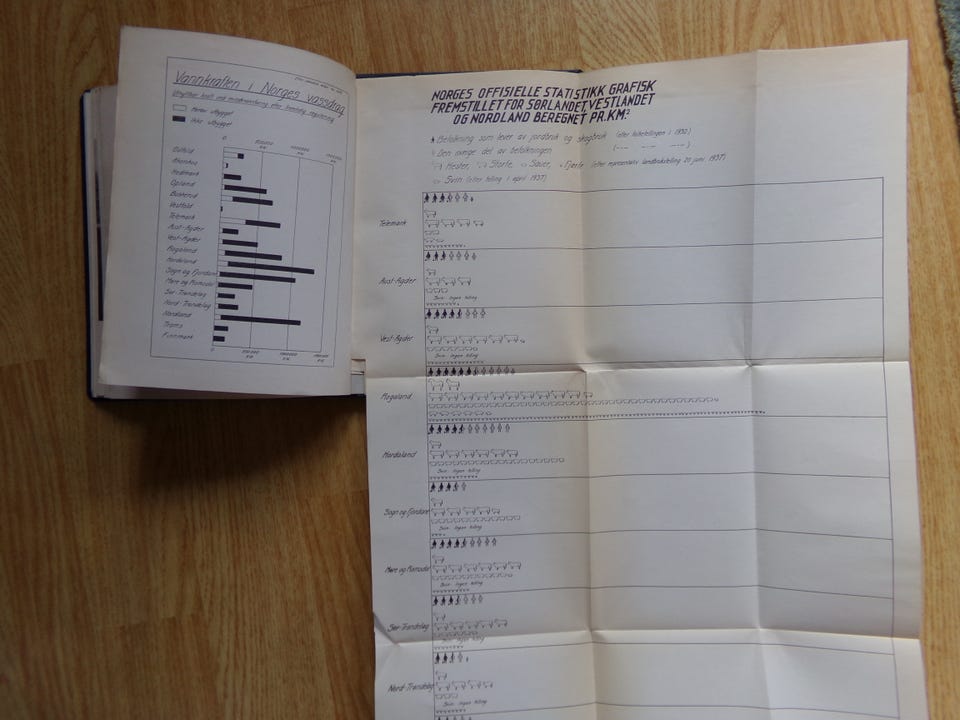 Vannkraften i Norges vassdrag
Utnyttbar kraft ved
etter
regulering
Herav utbygget
Ikke utbygget
0
Østfold
Akershus
Hedmark
Opland
Buskerud
Vestfold
Telemark
Aust-Agder
Vest-Agder
Rogaland
Hordaland
Sogn og Fjordane
Møre og Romsdal
Sør-Trøndelag
Nord-Trøndelag
Nordland
Troms
Finnmark
0
NORGES OFFISIELLE STATISTIKK GRAFISK
FREMSTILLET FOR SØRLANDET, VESTLANDET
OG NORDLAND BEREGNET PR. KM.²
Befolkning som lever av jordbruk og skogbruk (etter folketellingen i 1930)
Den øvrige del av befolkningen (— — —)
Hester, Storfe, Sauer, Fjærfe (etter representativ landbrukstelling 20 juni 1937)
Svin (etter telling 1 april 1937)
Telemark
Aust-Agder
Svin: Ingen telling
Vest-Agder
Svin: Ingen telling
Rogaland
Hordaland
Svin: Ingen telling
Sogn og Fjordane
Svin: Ingen telling
Møre og Romsdal
Svin: Ingen telling
Sør-Trøndelag
Svin: Ingen telling
Nord-Trøndelag
Svin: Ingen telling